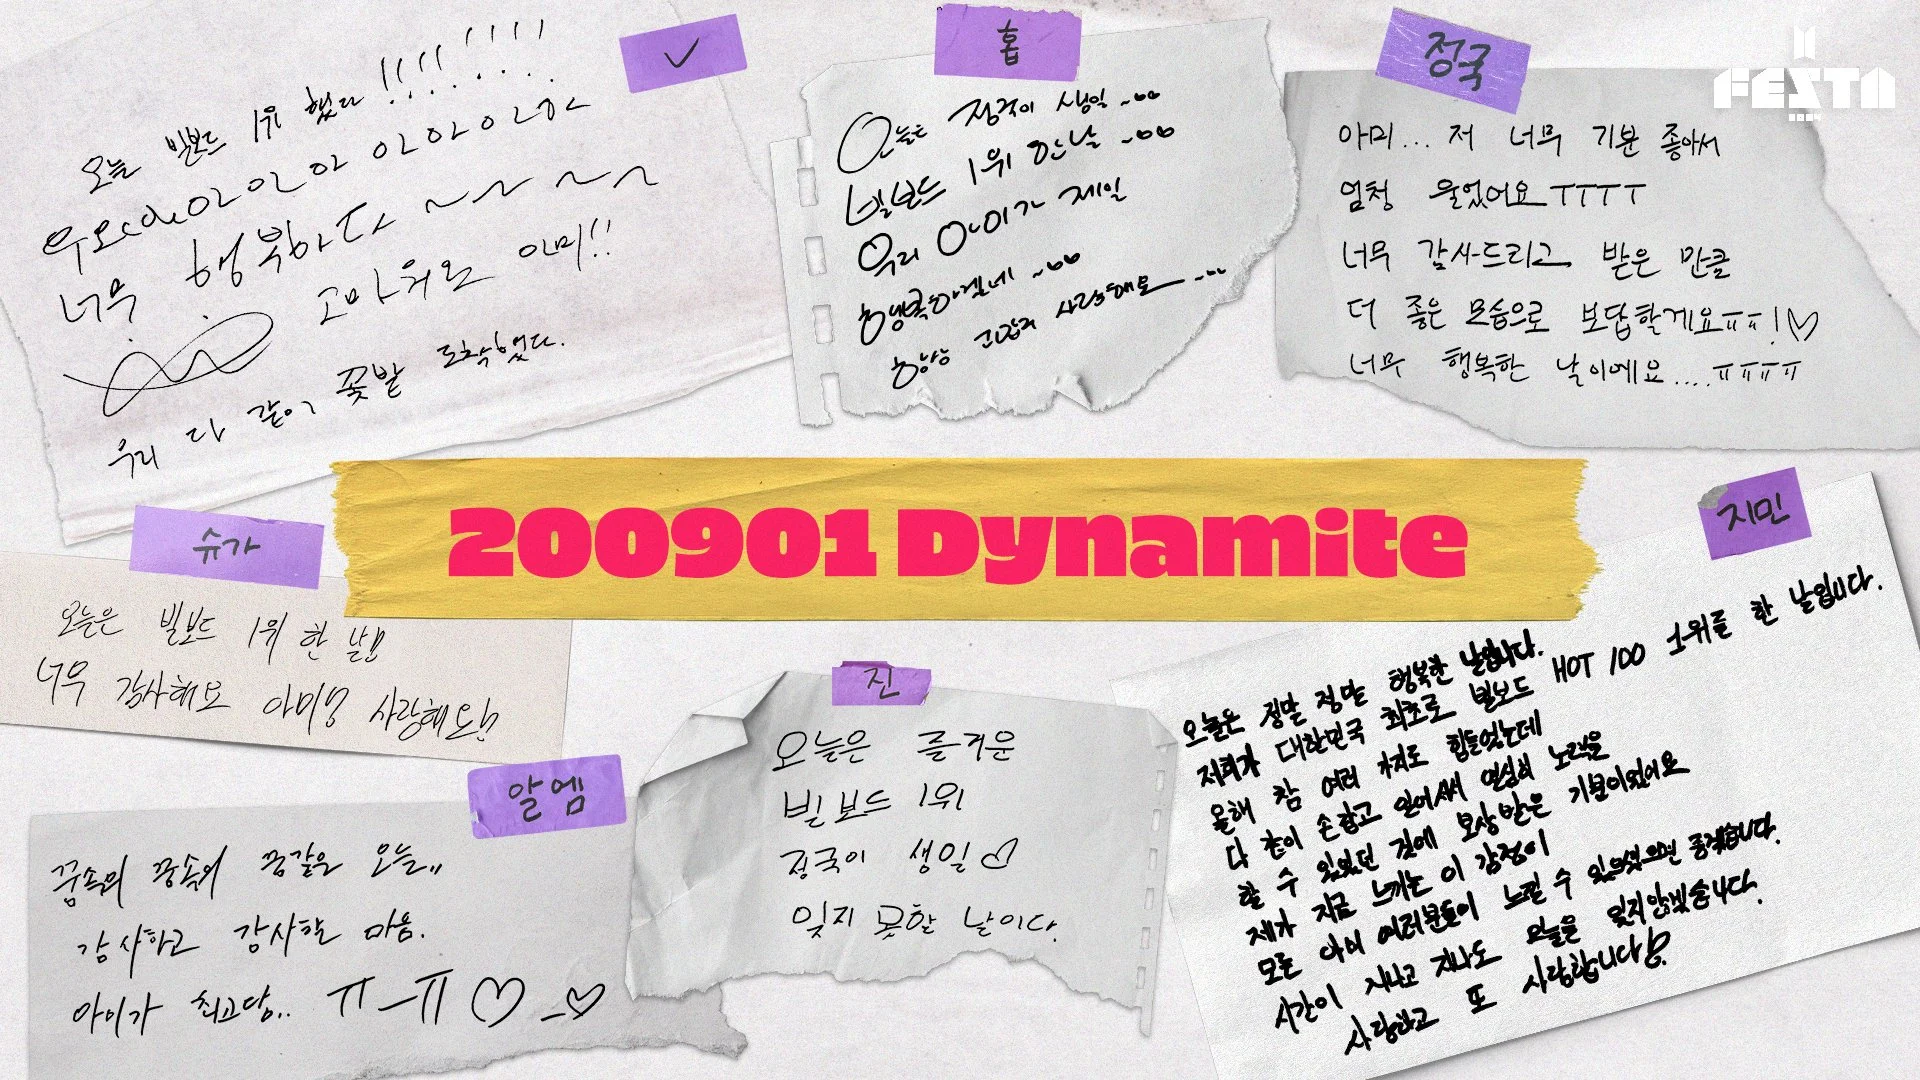 V
오늘 빌보드 1위 했다!!!!!!!!
너무 행복하다~~~~
고마워요 아미!!
우리 다 같이 꽃밭 도착했다.
홉
오늘은 정국이 생일~^^
빌보드 1위 한 날~^^
우리 아미가 제일
행복하겠네~^^
항상 고맙고 사랑해요~^^
정국
FESTA
아미... 저 너무 기분 좋아서
엄청 울었어요 ㅜㅜㅜㅜ
너무 감사드리고 받은 만큼
더 좋은 모습으로 보답할게요ㅠㅠ!♡
너무 행복한 날이에요....ㅠㅠㅠㅠ
200901 Dynamite
슈가
오늘은 빌보드 1위 한 날!!
너무 감사해요 아미! 사랑해요!!
알엠
꿈속의 꿈속의 꿈같은 오늘,,
감사하고 감사한 마음.
아미가 최고당.. ㅠ_ㅠ♡_♡
진
오늘은 즐거운
빌보드 1위
정국이 생일♡
잊지 못할 날이다.
지민
오늘은 정말 정말 행복한 날입니다.
저희가 대한민국 최초로 빌보드 HOT 100 1위를 한 날입니다.
올해 참 여러 가지로 힘들었는데
다 같이 손잡고 일어서서 열심히 노력을
할 수 있었던 것에 보상받은 기분이었어요
제가 지금 느끼는 이 감정이
모든 아미 여러분들이 느낄 수 있으셨으면 좋겠습니다.
시간이 지나고 지나도 오늘을 잊지않겠습니다.
사랑하고 또 사랑합니다!